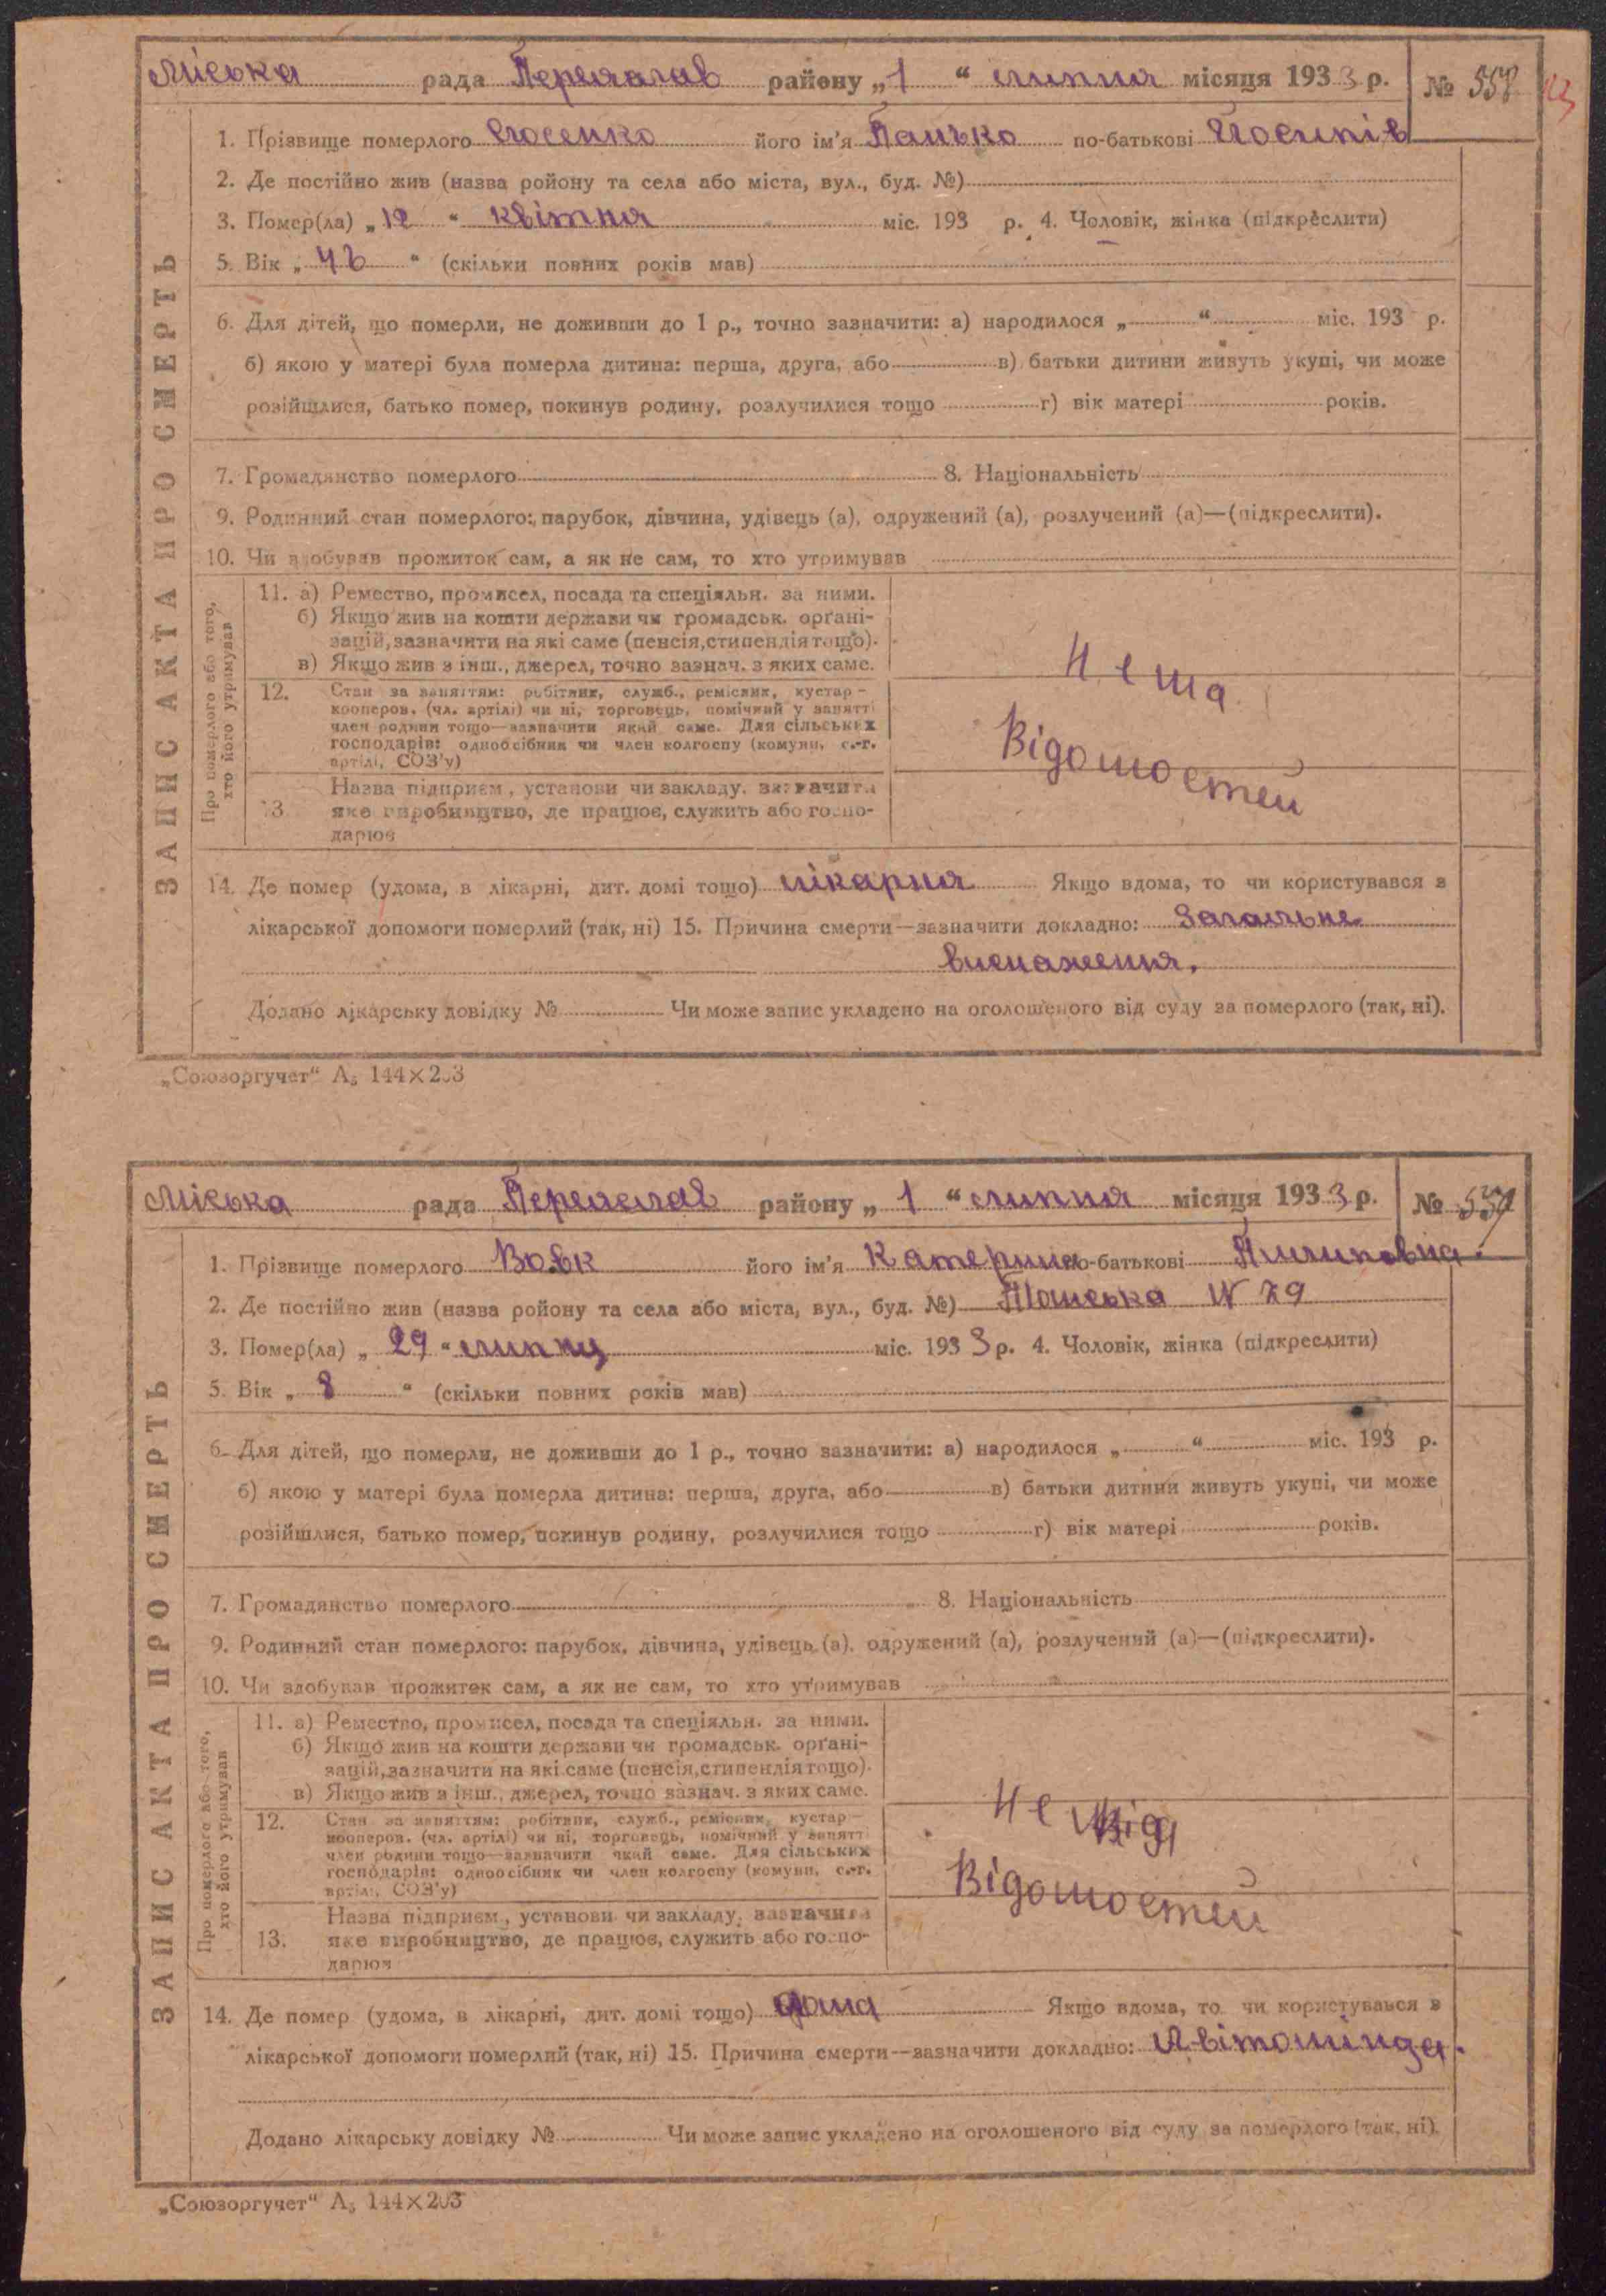 Міська рада Переяслав району „1“ липня місяця 1933 р. № 558
1. Прізвище померлого його ім'я Панько по-батькові Йосипів
2. Де постійно жив (назва району та села або міста, вул., буд. №)
3. Помер(ла) „12“ квітня міс. 193 р. 4. Чоловік, жінка (підкреслити)
5. Вік „ “ (скільки повних років мав)
6. Для дітей, що померли, не доживши до 1 р., точно зазначити: а) народилося „ “ міс. 193 р.
б) якою у матері була померла дитина: перша, друга, або в) батьки дитини живуть укупі, чи може
розійшлися, батько помер, покинув родину, розлучилися тощо г) вік матері років.
7. Громадянство померлого 8. Національність
9. Родинний стан померлого: парубок, дівчина, удівець (а), одружений (а), розлучений (а)—(підкреслити).
10. Чи здобував прожиток сам, а як не сам, то хто утримував
ЗАПИС АКТА ПРО СМЕРТЬ
Про померлого або того,
хто його утримував
11. а) Ремество, промисел, посада та спеціяльн. за ними.
б) Якщо жив на кошти держави чи громадськ. орґані-
зацій, зазначити на які саме (пенсія, стипендія тощо).
в) Якщо жив з інш., джерел, точно зазнач. з яких саме.
12. Стан за заняттям: робітник, служб., ремісник, кустар—
кооперов. (чл. артілі) чи ні, торговець, помічний у занятті
член родини тощо—зазначити який саме. Для сільських
господарів: одноосібник чи член колгоспу (комуни, с.-г.
артілі, СОЗ'у)
13. Назва підприєм., установи чи закладу, зазначити
яке виробництво, де працює, служить або госпо-
дарює
Нема
Відомостей
14. Де помер (удома, в лікарні, дит. домі тощо) лікарня Якщо вдома, то чи користувався з
лікарської допомоги померлий (так, ні) 15. Причина смерти—зазначити докладно: Загальне
виснаження.
Додано лікарську довідку № Чи може запис укладено на оголошеного від суду за померлого (так, ні).
„Союзоргучет“ А₅ 144×203
Міська рада Переяслав району „1“ липня місяця 1933 р. № 559
1. Прізвище померлого Вовк його ім'я Катерина по-батькові Пилиповна.
2. Де постійно жив (назва ройону та села або міста, вул., буд. №) № 29
3. Помер(ла) „29“ міс. 1933 р. 4. Чоловік, жінка (підкреслити)
5. Вік „8“ (скільки повних років мав)
6. Для дітей, що померли, не доживши до 1 р., точно зазначити: а) народилося „ “ міс. 193 р.
б) якою у матері була померла дитина: перша, друга, або в) батьки дитини живуть укупі, чи може
розійшлися, батько помер, покинув родину, розлучилися тощо г) вік матері років.
7. Громадянство померлого 8. Національність
9. Родинний стан померлого: парубок, дівчина, удівець (а), одружений (а), розлучений (а)—(підкреслити).
10. Чи здобував прожиток сам, а як не сам, то хто утримував
ЗАПИС АКТА ПРО СМЕРТЬ
Про померлого або того,
хто його утримував
11. а) Ремество, промисел, посада та спеціяльн. за ними.
б) Якщо жив на кошти держави чи громадськ. орґані-
зацій, зазначити на які саме (пенсія, стипендія тощо).
в) Якщо жив з інш., джерел, точно зазнач. з яких саме.
12. Стан за заняттям: робітник, служб., ремісник, кустар—
кооперов. (чл. артілі) чи ні, торговець, помічний у занятті
член родини тощо—зазначити який саме. Для сільських
господарів: одноосібник чи член колгоспу (комуни, с.-г.
артілі, СОЗ'у)
13. Назва підприєм., установи чи закладу, зазначити
яке виробництво, де працює, служить або госпо-
дарює
Відомостей
14. Де помер (удома, в лікарні, дит. домі тощо) дома Якщо вдома, то чи користувався з
лікарської допомоги померлий (так, ні) 15. Причина смерти—зазначити докладно: Авітоміноз.
Додано лікарську довідку № Чи може запис укладено на оголошеного від суду за померлого (так, ні).
„Союзоргучет“ А₅ 144×203